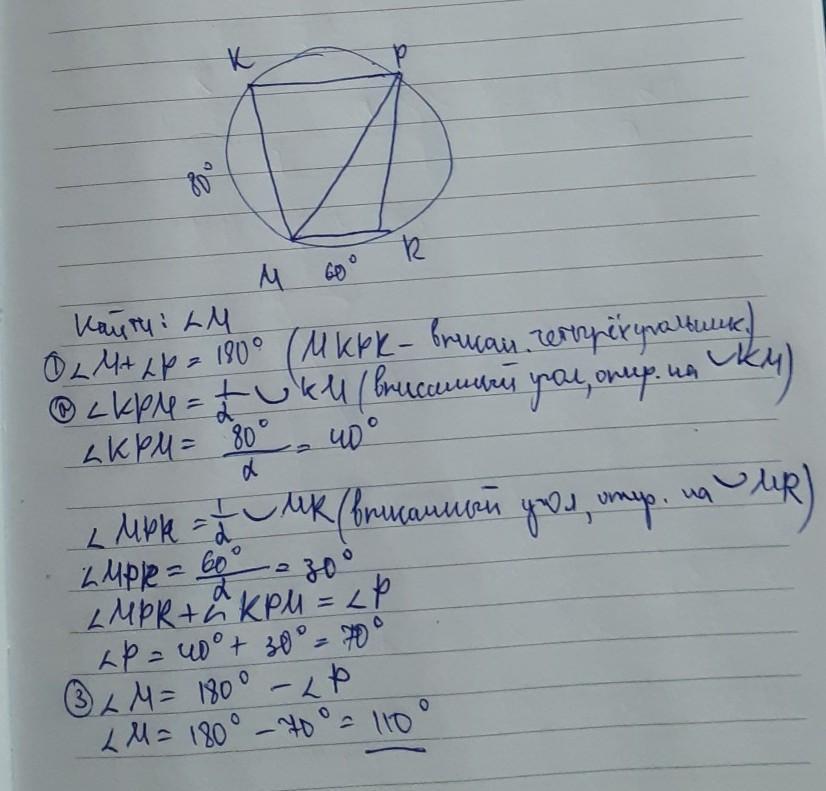 K P
80°
M 60° R
Найти: ∠M
① ∠M + ∠P = 180° (MKPR – вписан. четырёхугольник)
② ∠KPM = 1/2 ◡ KM (вписанный угол, опир. на ◡KM)
∠KPM = 80°/2 = 40°
∠MPR = 1/2 ◡ MR (вписанный угол, опир. на ◡MR)
∠MPR = 60°/2 = 30°
∠MPR + ∠KPM = ∠P
∠P = 40° + 30° = 70°
③ ∠M = 180° – ∠P
∠M = 180° – 70° = 110°